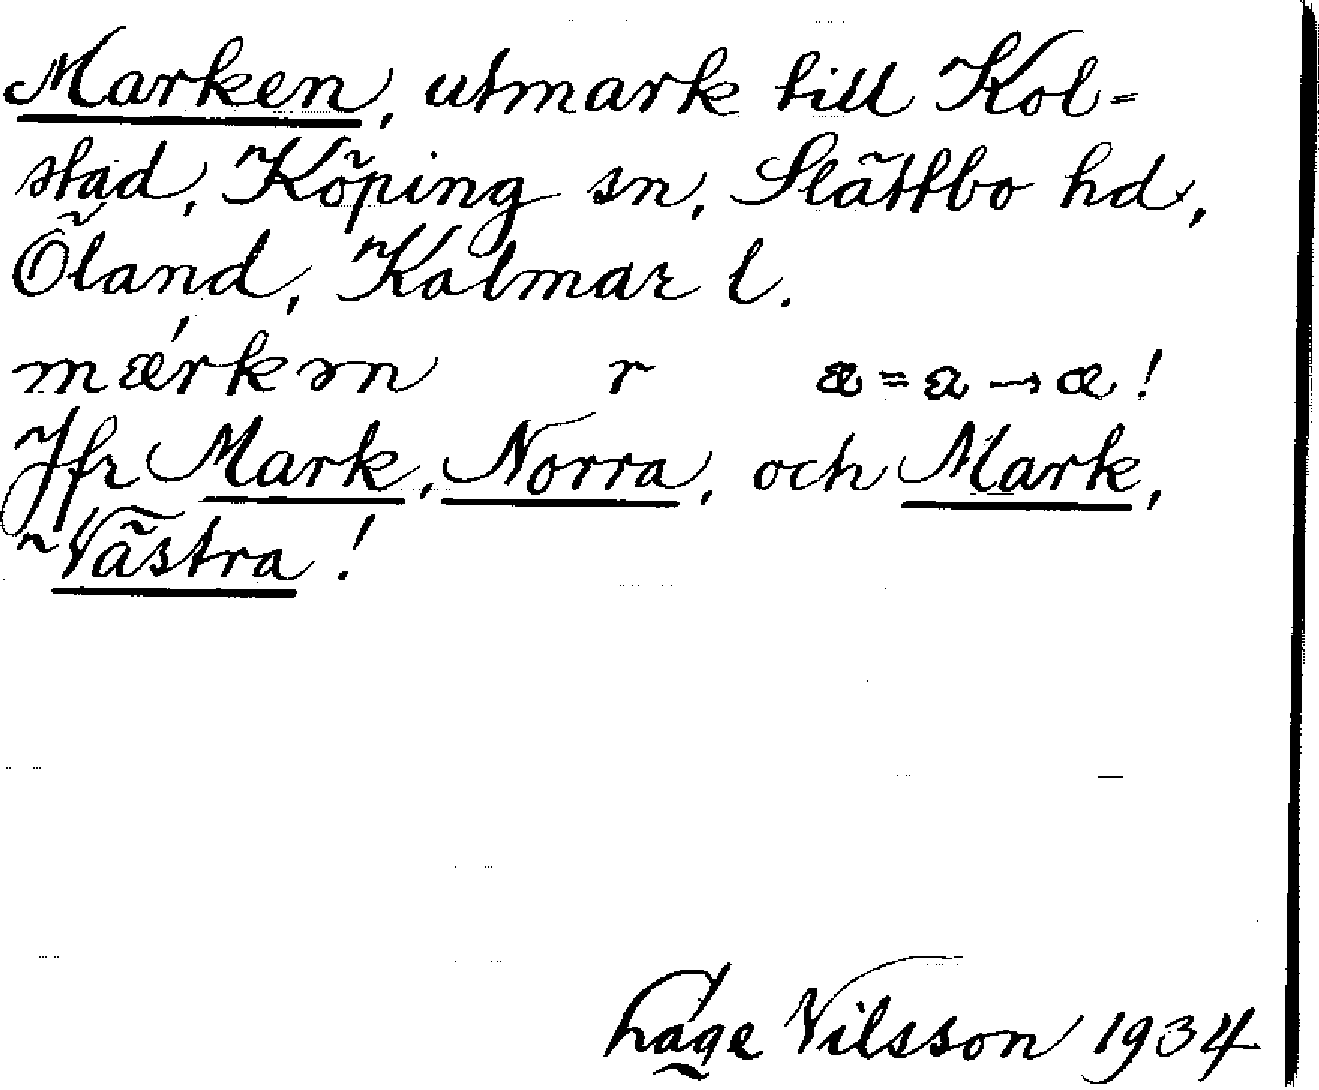 Marken, utmark till Kol-
stad, Köping sn, Slättbo hd,
Öland, Kalmar l.
márkɘn r a = a → a!
Jfr Mark, Norra, och Mark,
Västra!
Lage Nilsson 1934